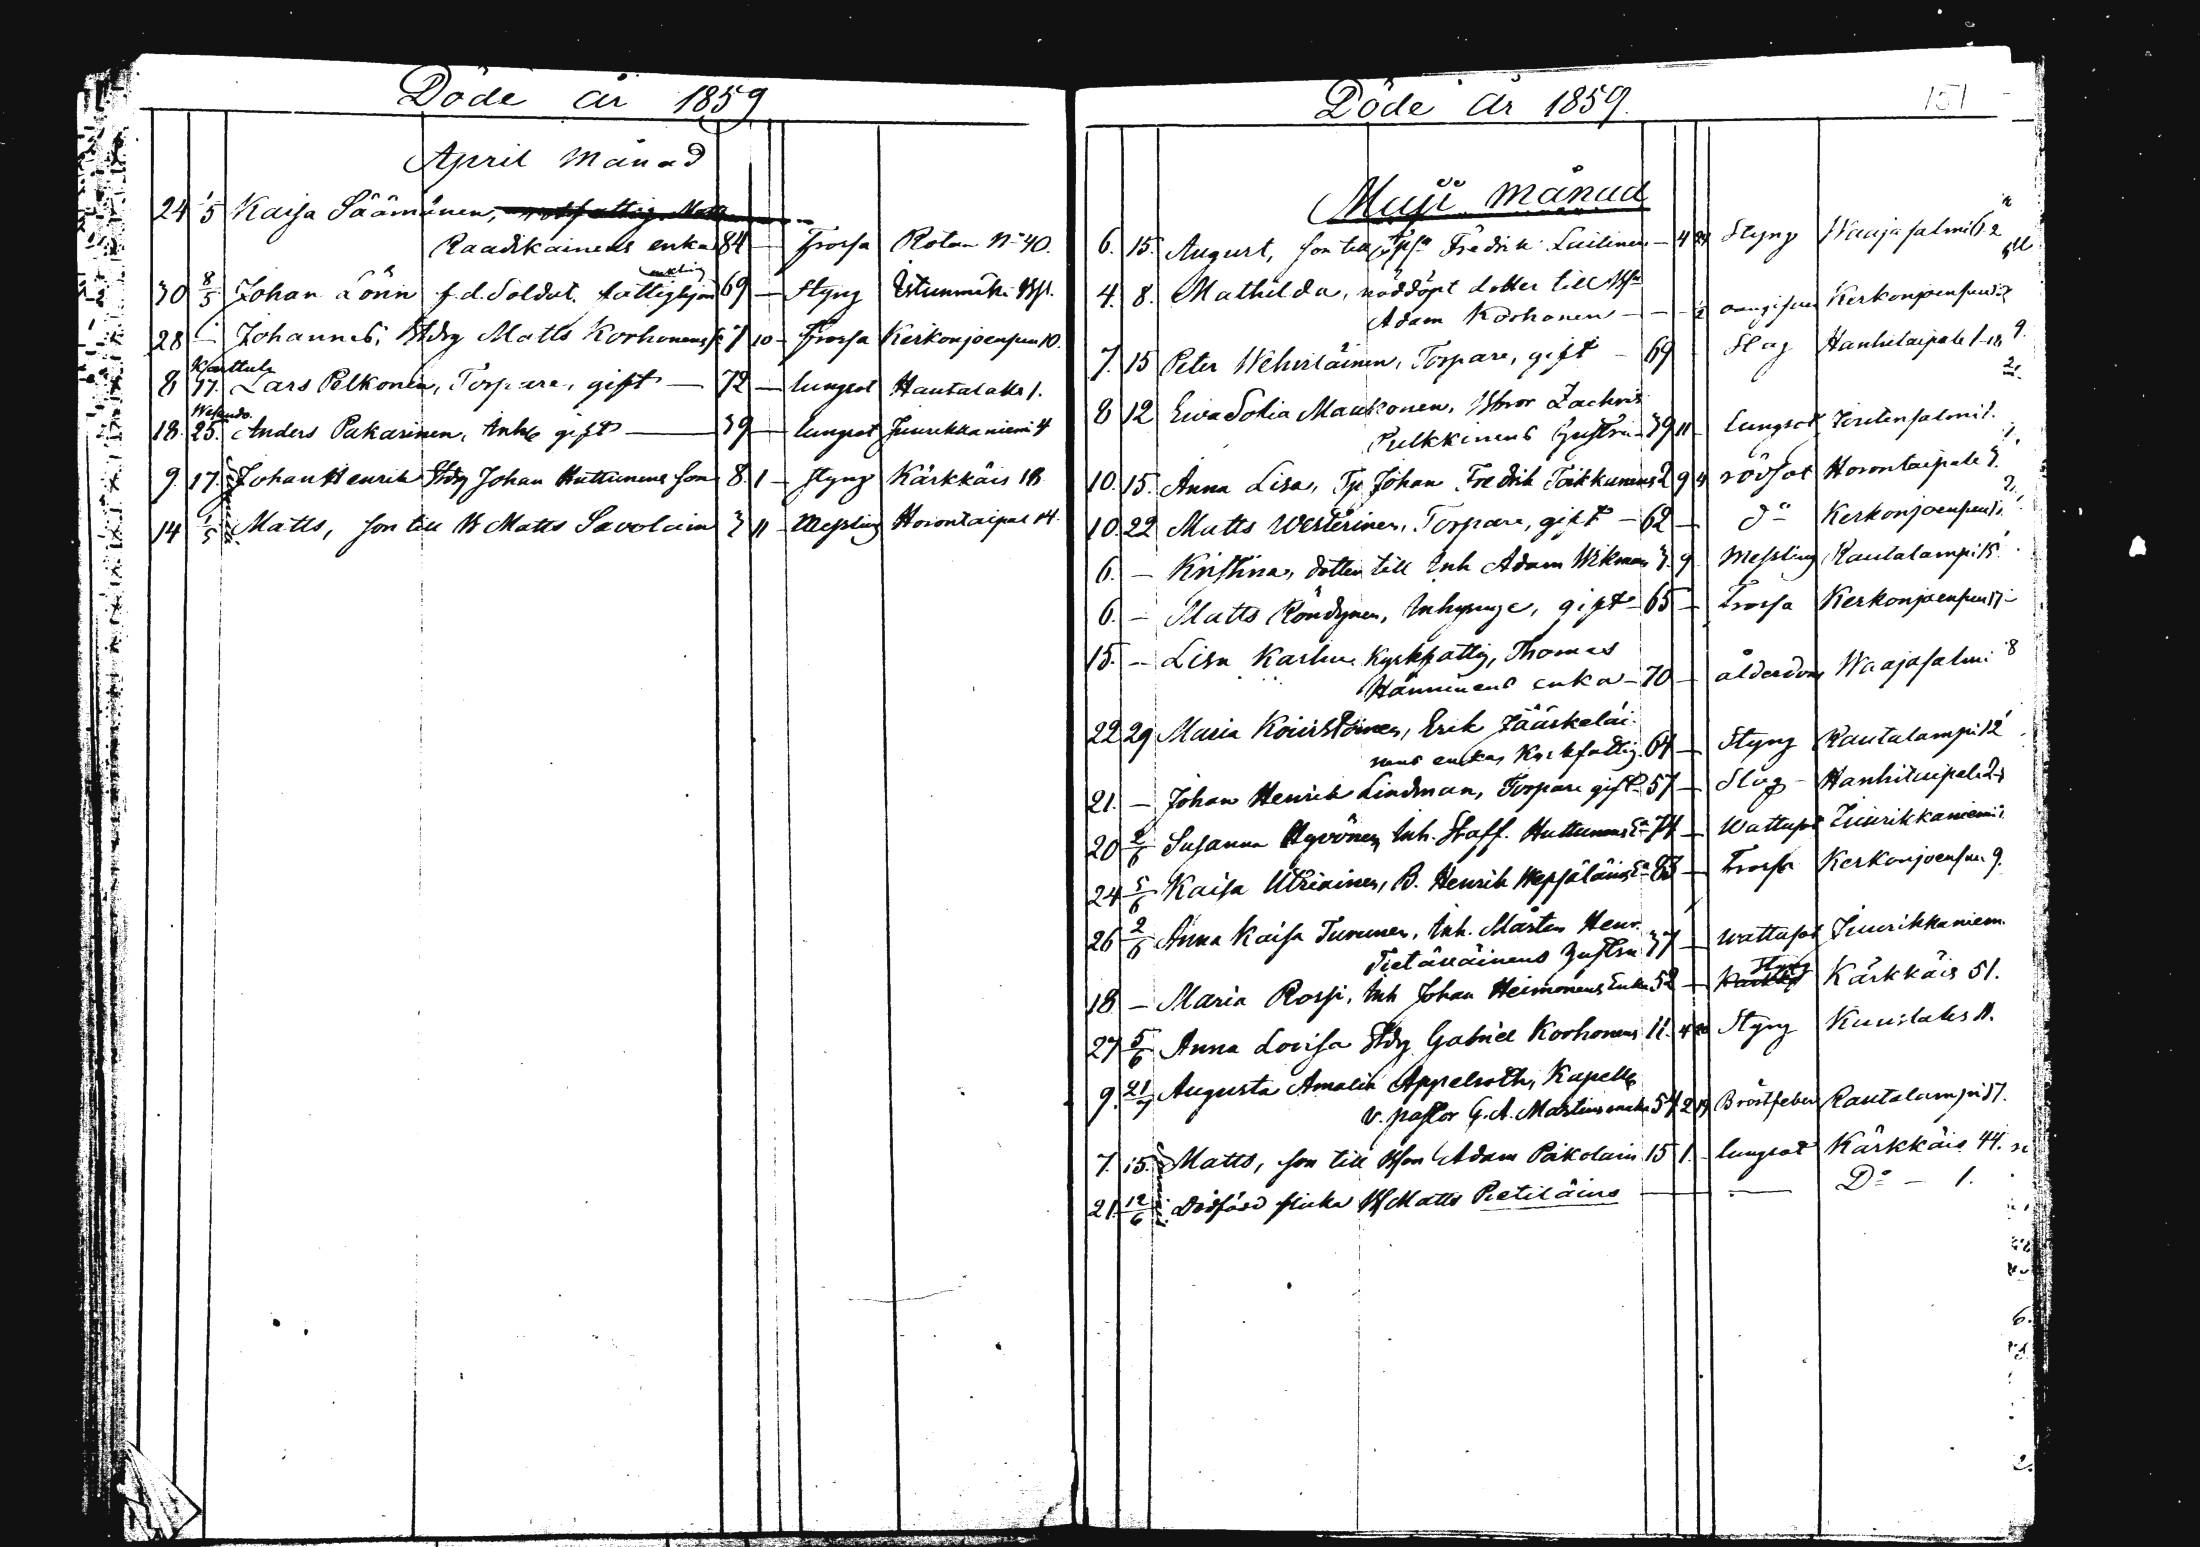 Döde år 1859
April månad
24 1/5 Kaisa Säämänen,
Raadikainens enka 84 — Frossa Rotan No 40.
enkling
30 8/5 Johan Lönn f.d. Soldat, fattighjon 69 — Styng Istunmäki
28 — Johannes, Matts Korhonens 7 10 — Frossa Kerkonjoensuu 10.
Karttula
8 17. Lars Pelkonen, Torpare, gift — 72 — lungsot Hautalaks 1.
Wesando
18. 25. Anders Pakarinen, Inh gift — 39 — lungsot Juurikkaniemi 4
9. 17. Johan Henrik Johan Huttunens son 8. 1 — Styng Kärkkäis 18
14 1/5 Matts, son till Matts Savolain 3 11 — Messling Horontaipal 14.
Döde år 1859.
151
Maji månad
6. 15. August, son till Fredrik Lailinen — 4 24 Styng Waajasalmi 62
4. 8. Mathilda, nöddöpt dotter till
Adam Korhonen — — ½ oangifven Kerkonjoensuu
7. 15 Peter Wehviläinen, Torpare, gift — 69 Slag Hanhitaipale 1
8 12 Ewa Sofia Maukonen, Zachris
Pulkkinens hustru 39 11 lungsot
10. 15. Anna Lisa, Tp Johan Fredrik Toikkanens 2 9 4 rödsot Horontaipale 5.
10. 22 Matts Westerinen, Torpare, gift — 62 — do Kerkonjoensuu
6. — Kristina, dotter till Inh Adam Wikman 3. 9 Messling Rautalampi 15
6. — Matts Röndynen, Inhysinge, gift — 65 — Frossa Kerkonjoensuu 17
15. — Lisa Karhu Kyrkfattig, Thomas
Hänninens enka — 70 — ålderdom Waajasalmi 8
22 29 Maria Kouvstoinen, Erik Jääskeläi-
nens enka, Kyrkfattig. 64 — Styng Rautalampi 12
21. — Johan Henrik Lindman, Torpare gift 57 — Slag — Hanhitaipale 2
20 2/6 Susanna Hyvönen, Inh. Staff. Huttunens Ea 74 — Wattusot Juurikkaniemi
24 5/6 Kaisa Utriainen, B. Henrik Wepsäläins Ea 83 — Frossa Kerkonjoensuu 9.
26 2/6 Anna Kaisa Turunen, Inh. Mårten Henr.
Tietäväinens hustru 37 — Wattusot Juurikkaniem
18 — Maria Rossi, Inh Johan Heimonens Enka 52 — Styng Kärkkäis 51.
27 5/6 Anna Lovisa Gabriel Korhonens 11. 4 20 Styng Kuuslaks 11.
9. 21/7 Augusta Amalia Appelroth, Kapell.
v. pastor G. A. Martins enka 54 2 19 Bröstfeber Rautalampi 17.
7. 15. Matts, son till Adam Pakolain 15 1. lungsot Kärkkäis 44.
21. 12/6 Dödfödd flicka Matts Pietiläins — — Do — 1.